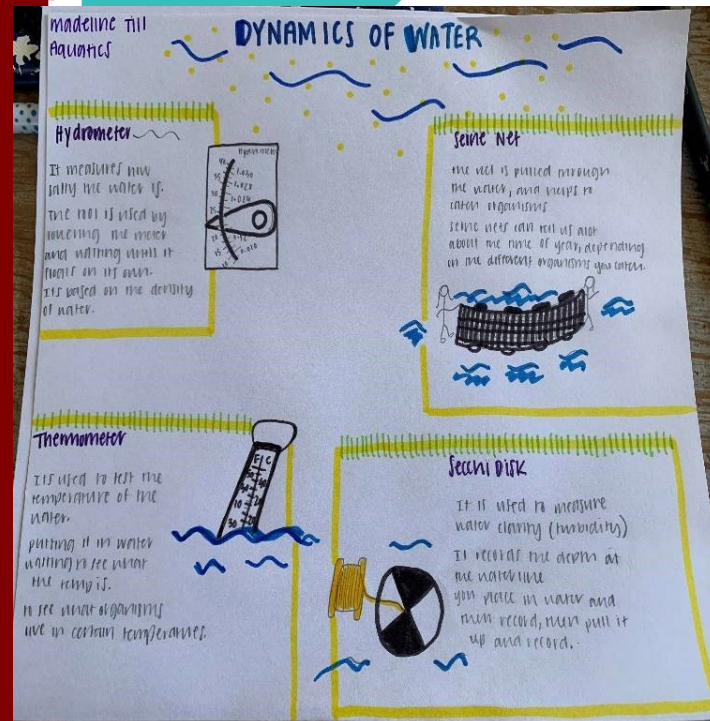 madeline Till
Aquatics
DYNAMICS OF WATER
Hydrometer
It measures how
salty the water is.
The tool is used by
lowering the meter
and waiting until it
floats on its own.
Its based on the density
of water.
Hydrometer
40
35
30
25
20
15
1.030
1.028
1.010
Seine Net
the net is pulled through
the water, and helps to
catch organisms
seine nets can tell us alot
about the time of year, depending
on the different organisms you catch.
Thermometer
Its used to test the
temperature of the
water.
putting it in water
waiting to see what
the temp is.
to see what organisms
live in certain temperatures.
F C
10
30
Secchi Disk
It is used to measure
water clarity (turbidity)
It records the depth at
the waterline
you place in water and
then record, then pull it
up and record.